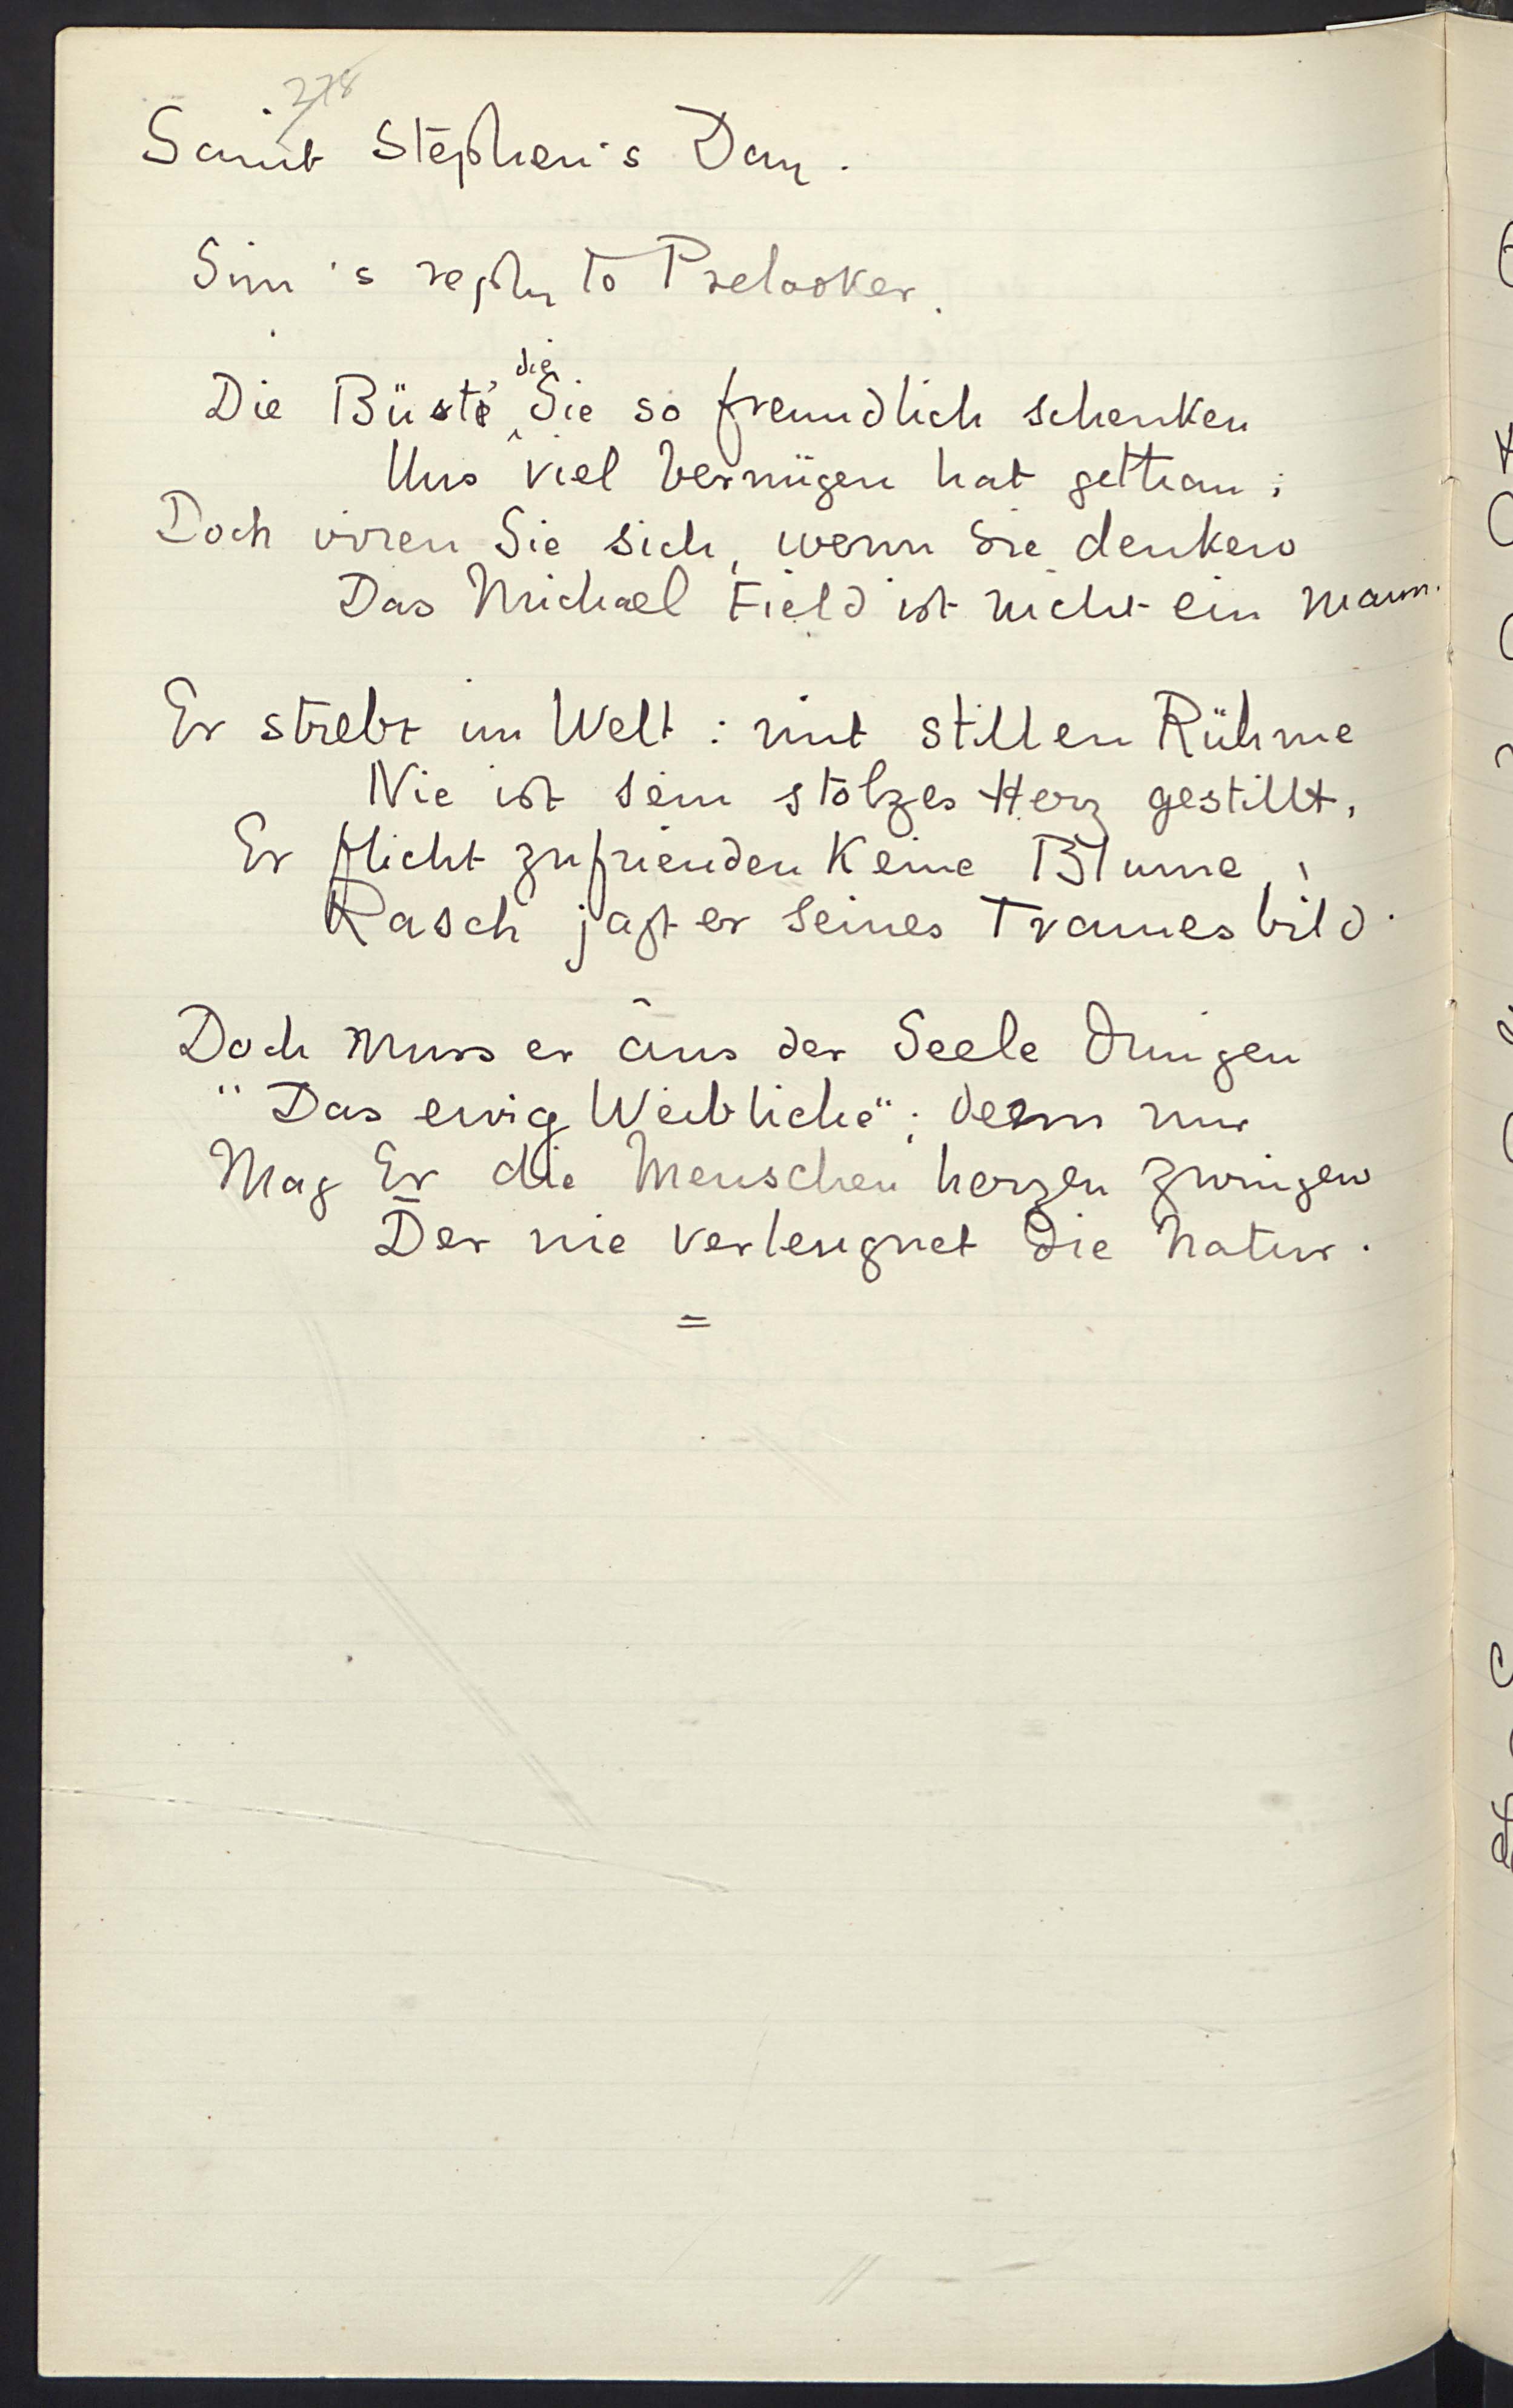 278
Saint Stephen's Day.
Sim's reply to Prelooker.
Die Büste die Sie so freundlich schenken
Uns viel Vernügen hat gethan;
Doch irren Sie sich, wenn Sie denken
Das Michael Field ist nicht ein Mann.
Er strebt im Welt: mit stillen Rühme
Nie ist sein stolzes Herz gestillt,
Er flicht zufrienden Keine Blume,
Rasch jagt er seines Traumesbild.
Doch muss er aus der Seele dringen
"Das ewig Weibliche"; denn nur
Mag Er die Menschen herzen zwingen
Der nie verleugnet die Natur.
=